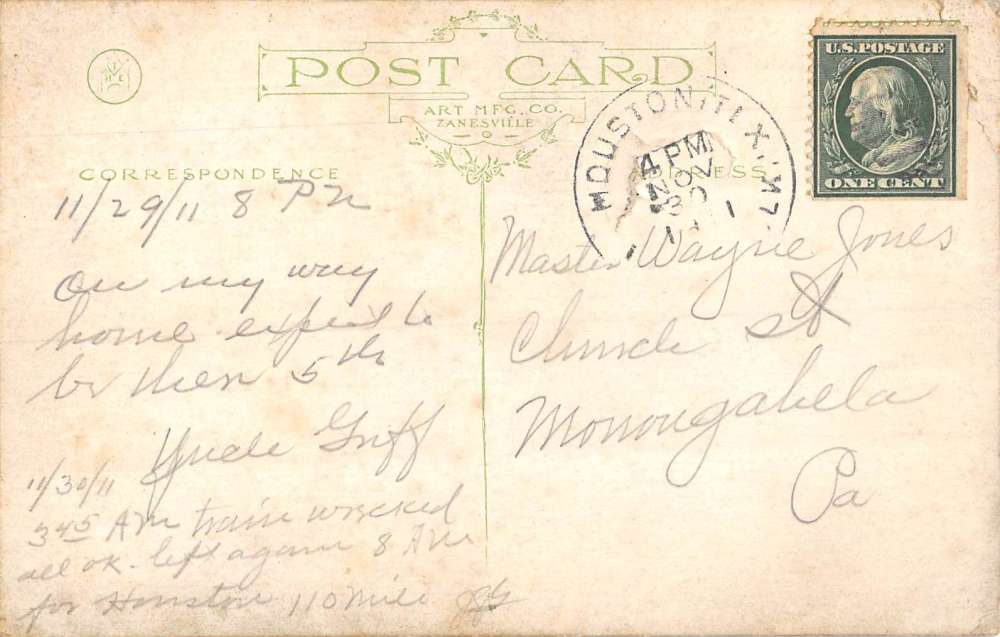 POST CARD
ART MFG. CO.
ZANESVILLE
U.S. POSTAGE
ONE CENT
HOUSTON, TEX.
4 PM
NOV
30
CORRESPONDENCE
11/29/11 8 PM
On my way
home expect to
be then 5th
Uncle Griff
11/30/11
345 AM train wrecked
all ok. left again 8 AM
for Houston 110 mile
Master Wayne Jones
Church St
Monongahela
Pa